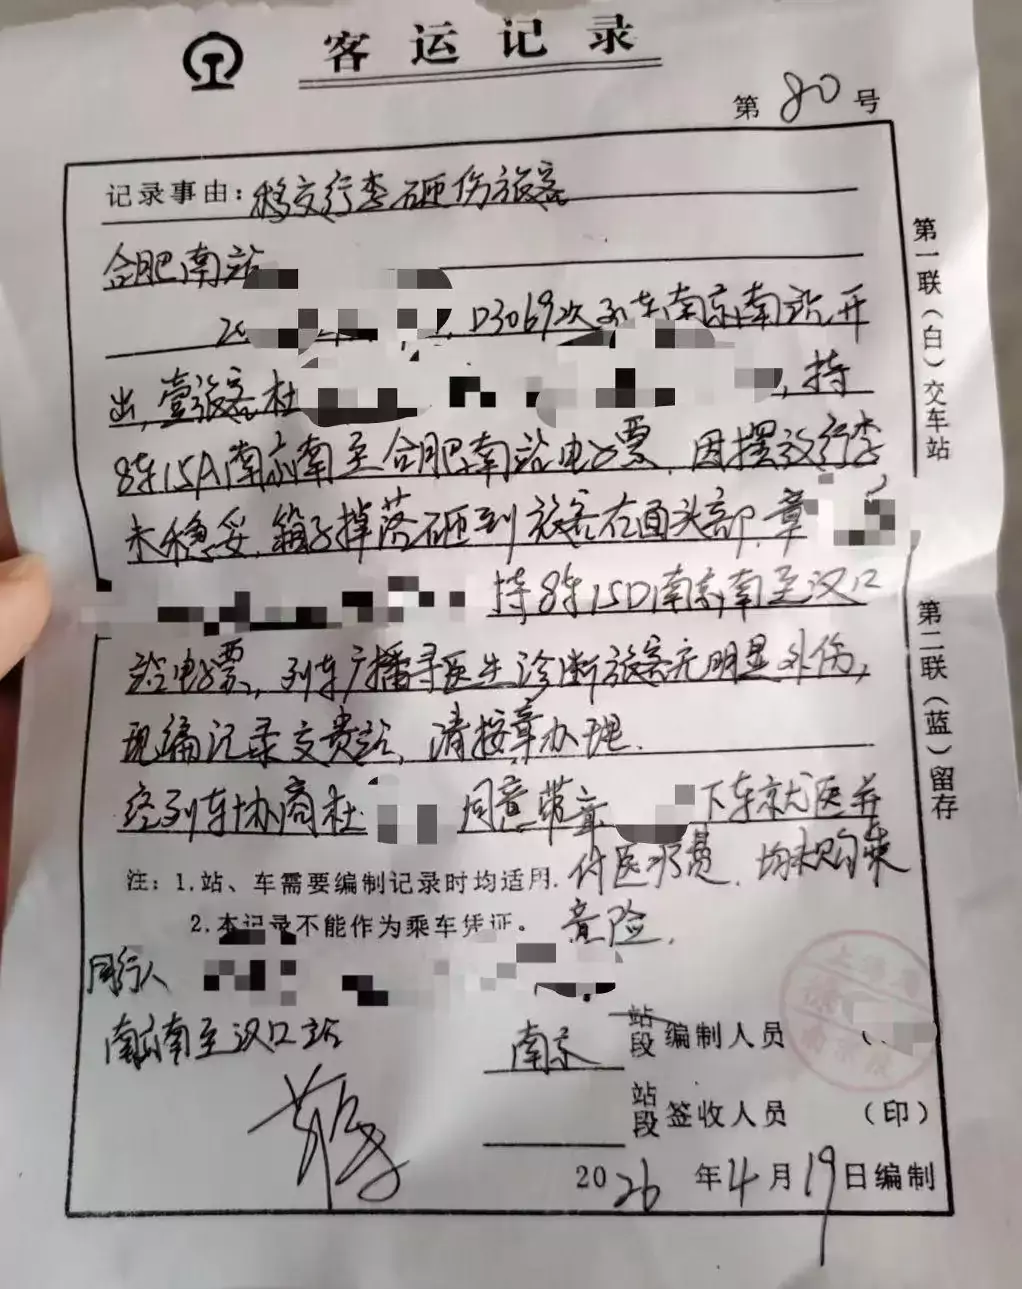 客运记录
第 80 号
记录事由：移交行李砸伤旅客
合肥南站
D3069次列车南京南站开
出，壹旅客杜 ，持
8车15A南京南至合肥南站电子票，因摆放行李
未稳妥，箱子掉落砸到旅客右面头部，章
持8车15D南京南至汉口
站电子票，列车广播寻医生诊断旅客无明显外伤，
现编记录交贵站，请按章办理.
经列车协商杜 同意带章 下车就医并
付医疗费，均未购乘
意险.
注：1.站、车需要编制记录时均适用.
2.本记录不能作为乘车凭证。
同行人
南京南至汉口站
南京 站段 编制人员
站段 签收人员 （印）
2026年4月19日编制
第一联（白）交车站
第二联（蓝）留存